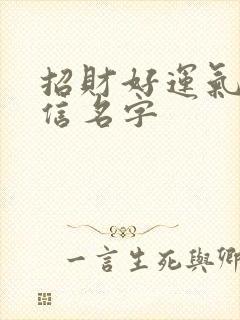 招財好運氣
信名字
一言生死與鄉